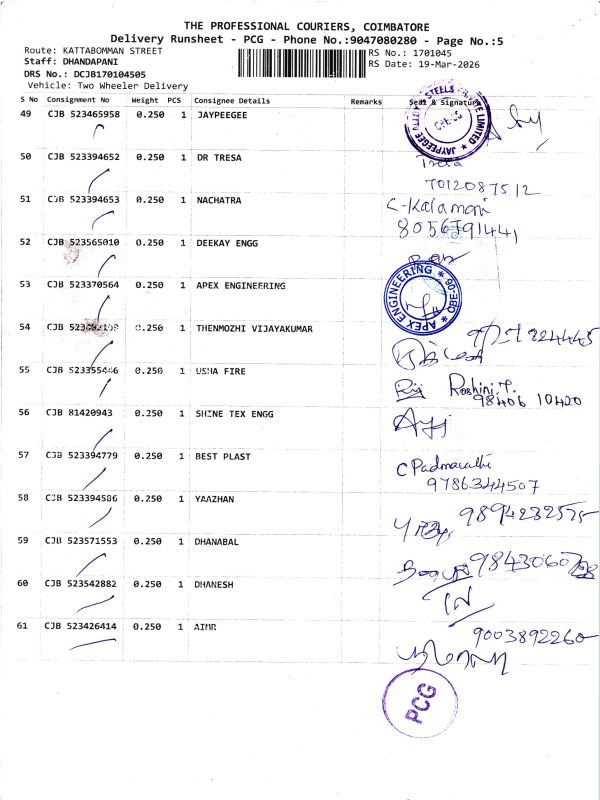 THE PROFESSIONAL COURIERS, COIMBATORE
Delivery Runsheet - PCG - Phone No.:9047080280 - Page No.:5
Route: KATTABOMMAN STREET
RS No.: 1701045
Staff: DHANDAPANI
RS Date: 19-Mar-2026
DRS No.: DCJB170104505
Vehicle: Two Wheeler Delivery
S No Consignment No Weight PCS Consignee Details Remarks Seal & Signature
49 CJB 523465958 0.250 1 JAYPEEGEE
50 CJB 523394652 0.250 1 DR TRESA
7012087512
51 CJB 523394653 0.250 1 NACHATRA C-Kalamani
8056791441
52 CJB 523565010 0.250 1 DEEKAY ENGG
53 CJB 523370564 0.250 1 APEX ENGINEERING
APEX ENGINEERING
54 CJB 0.250 1 THENMOZHI VIJAYAKUMAR
55 CJB 0.250 1 USHA FIRE Roshini.T.
98406 10420
56 CJB 81420943 0.250 1 SHINE TEX ENGG
57 CJB 523394779 0.250 1 BEST PLAST C Padmavathi
9786344507
58 CJB 523394586 0.250 1 YAAZHAN
9894232575
59 CJB 523571553 0.250 1 DHANABAL
60 CJB 523542882 0.250 1 DHANESH
61 CJB 523426414 0.250 1 AIMR
9003892260
PCG